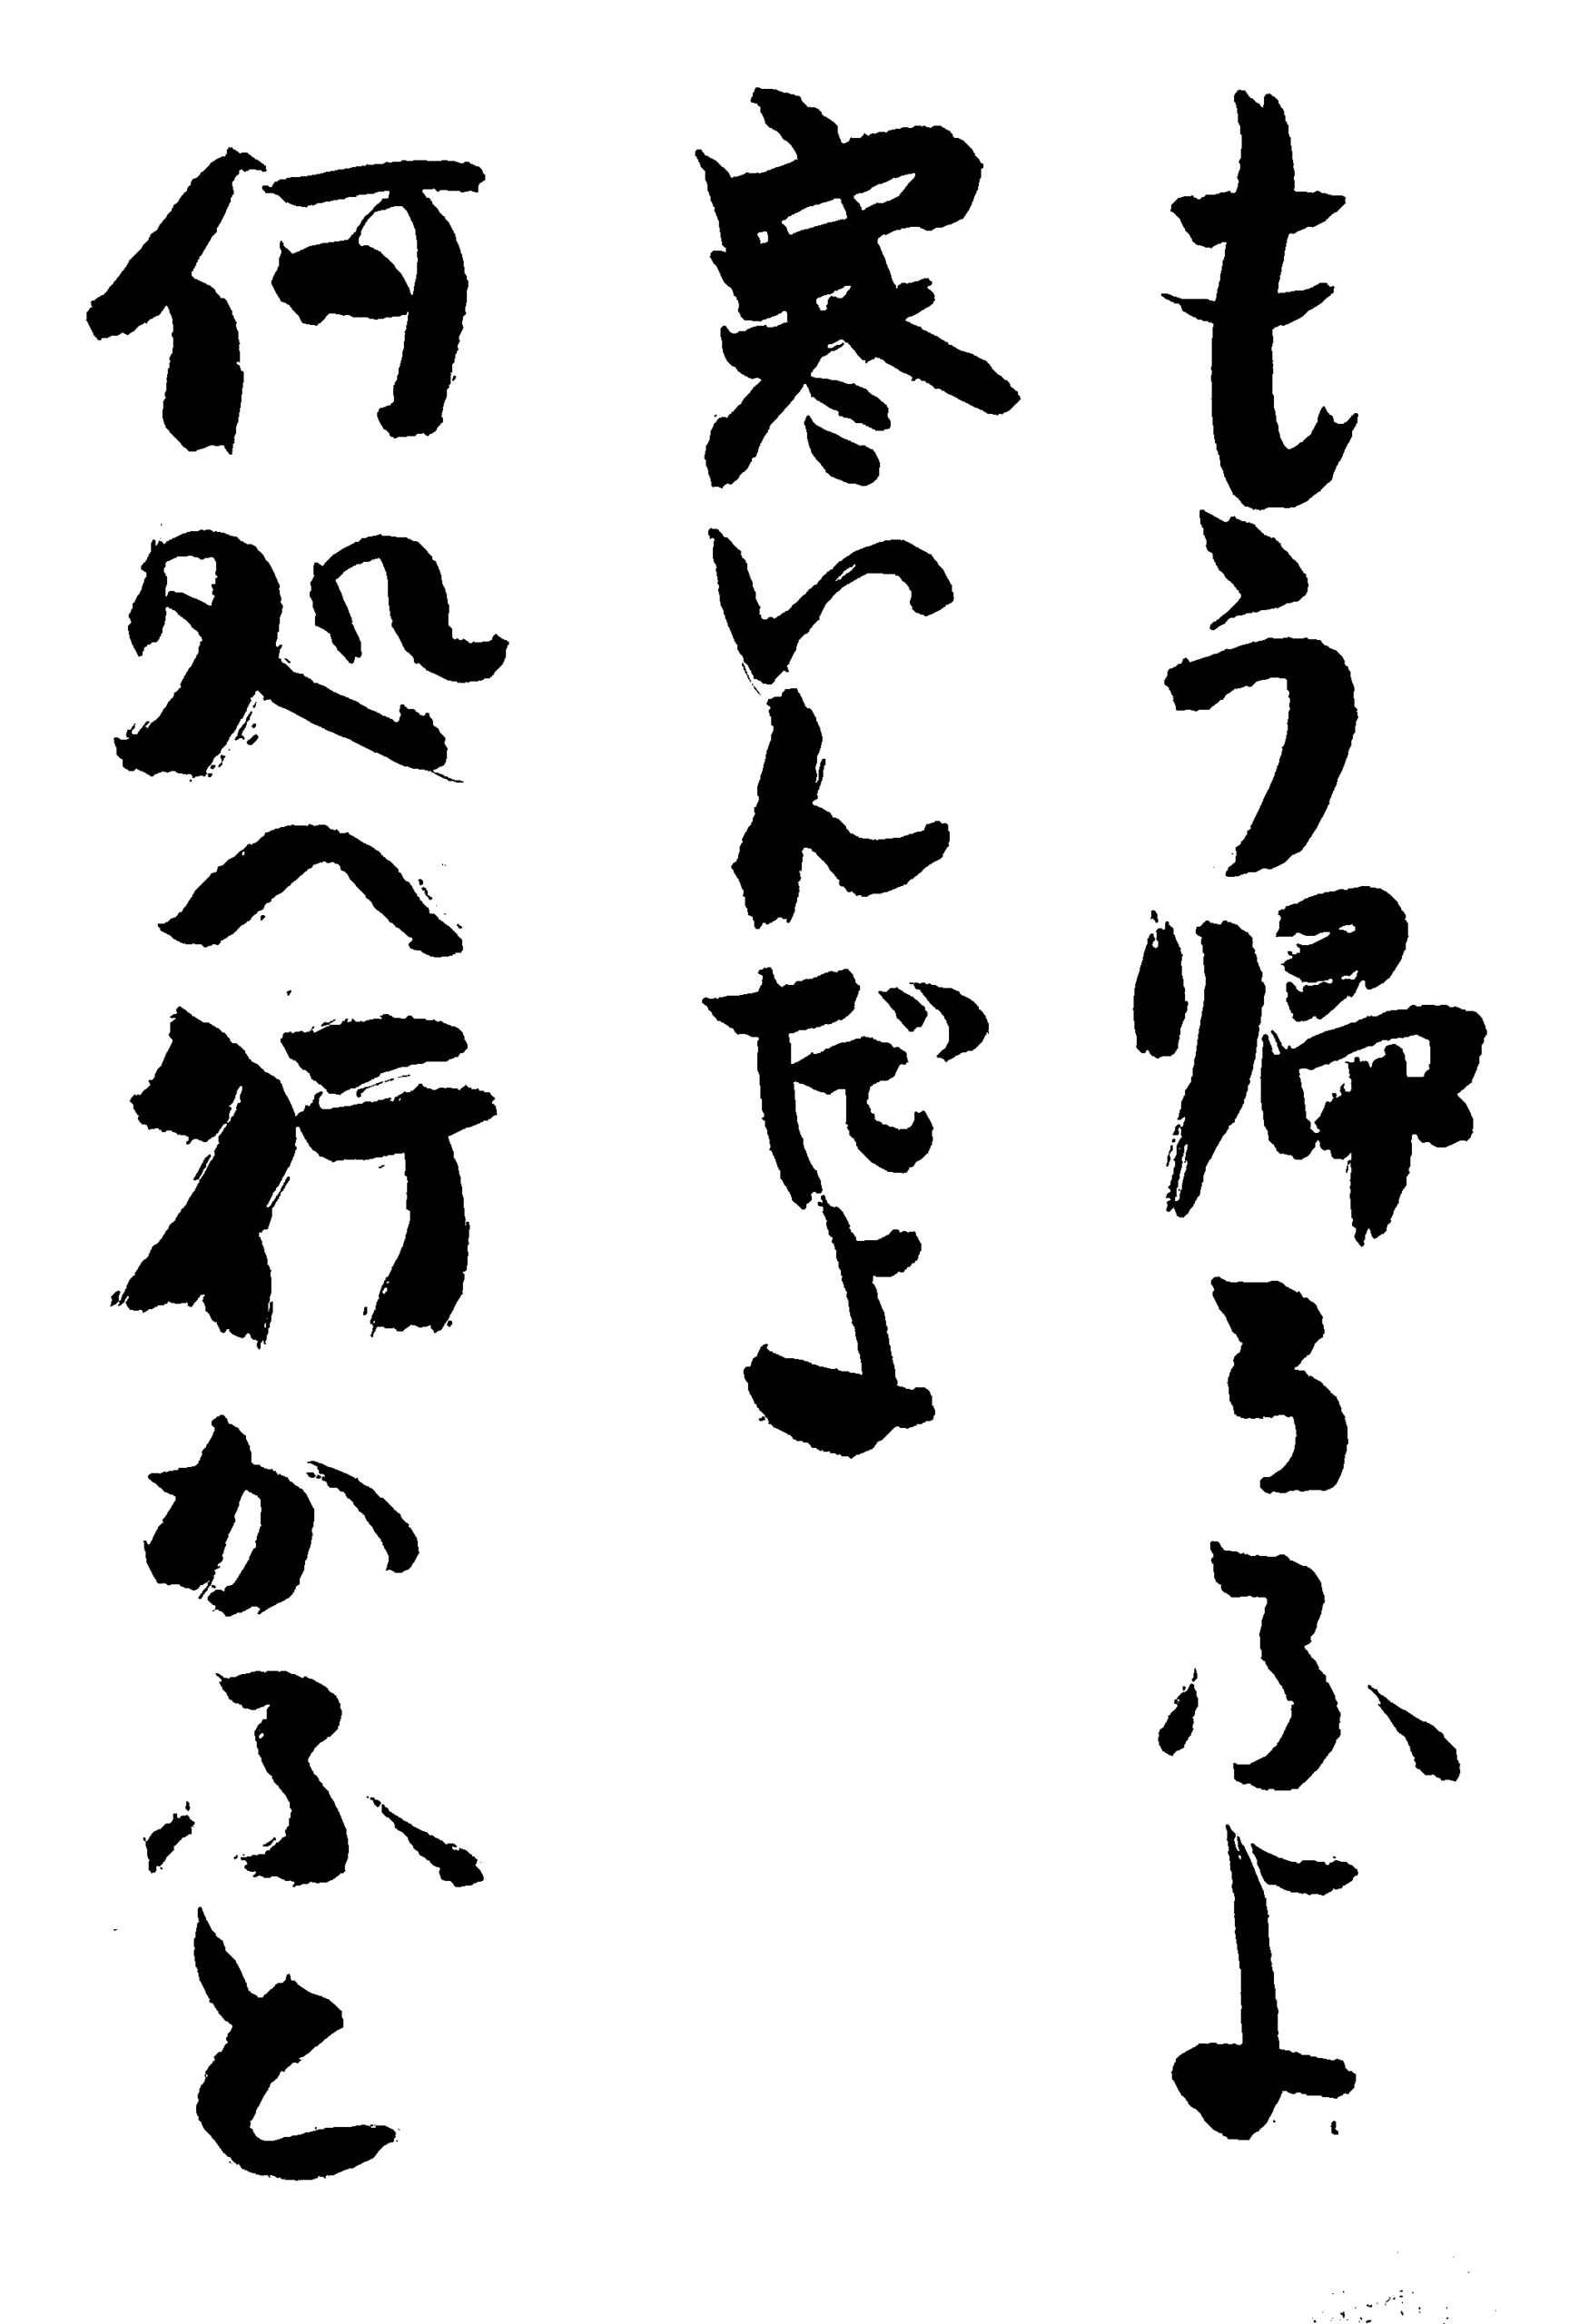 もう帰らふよ
寒いんだよ
何処へ行かふと